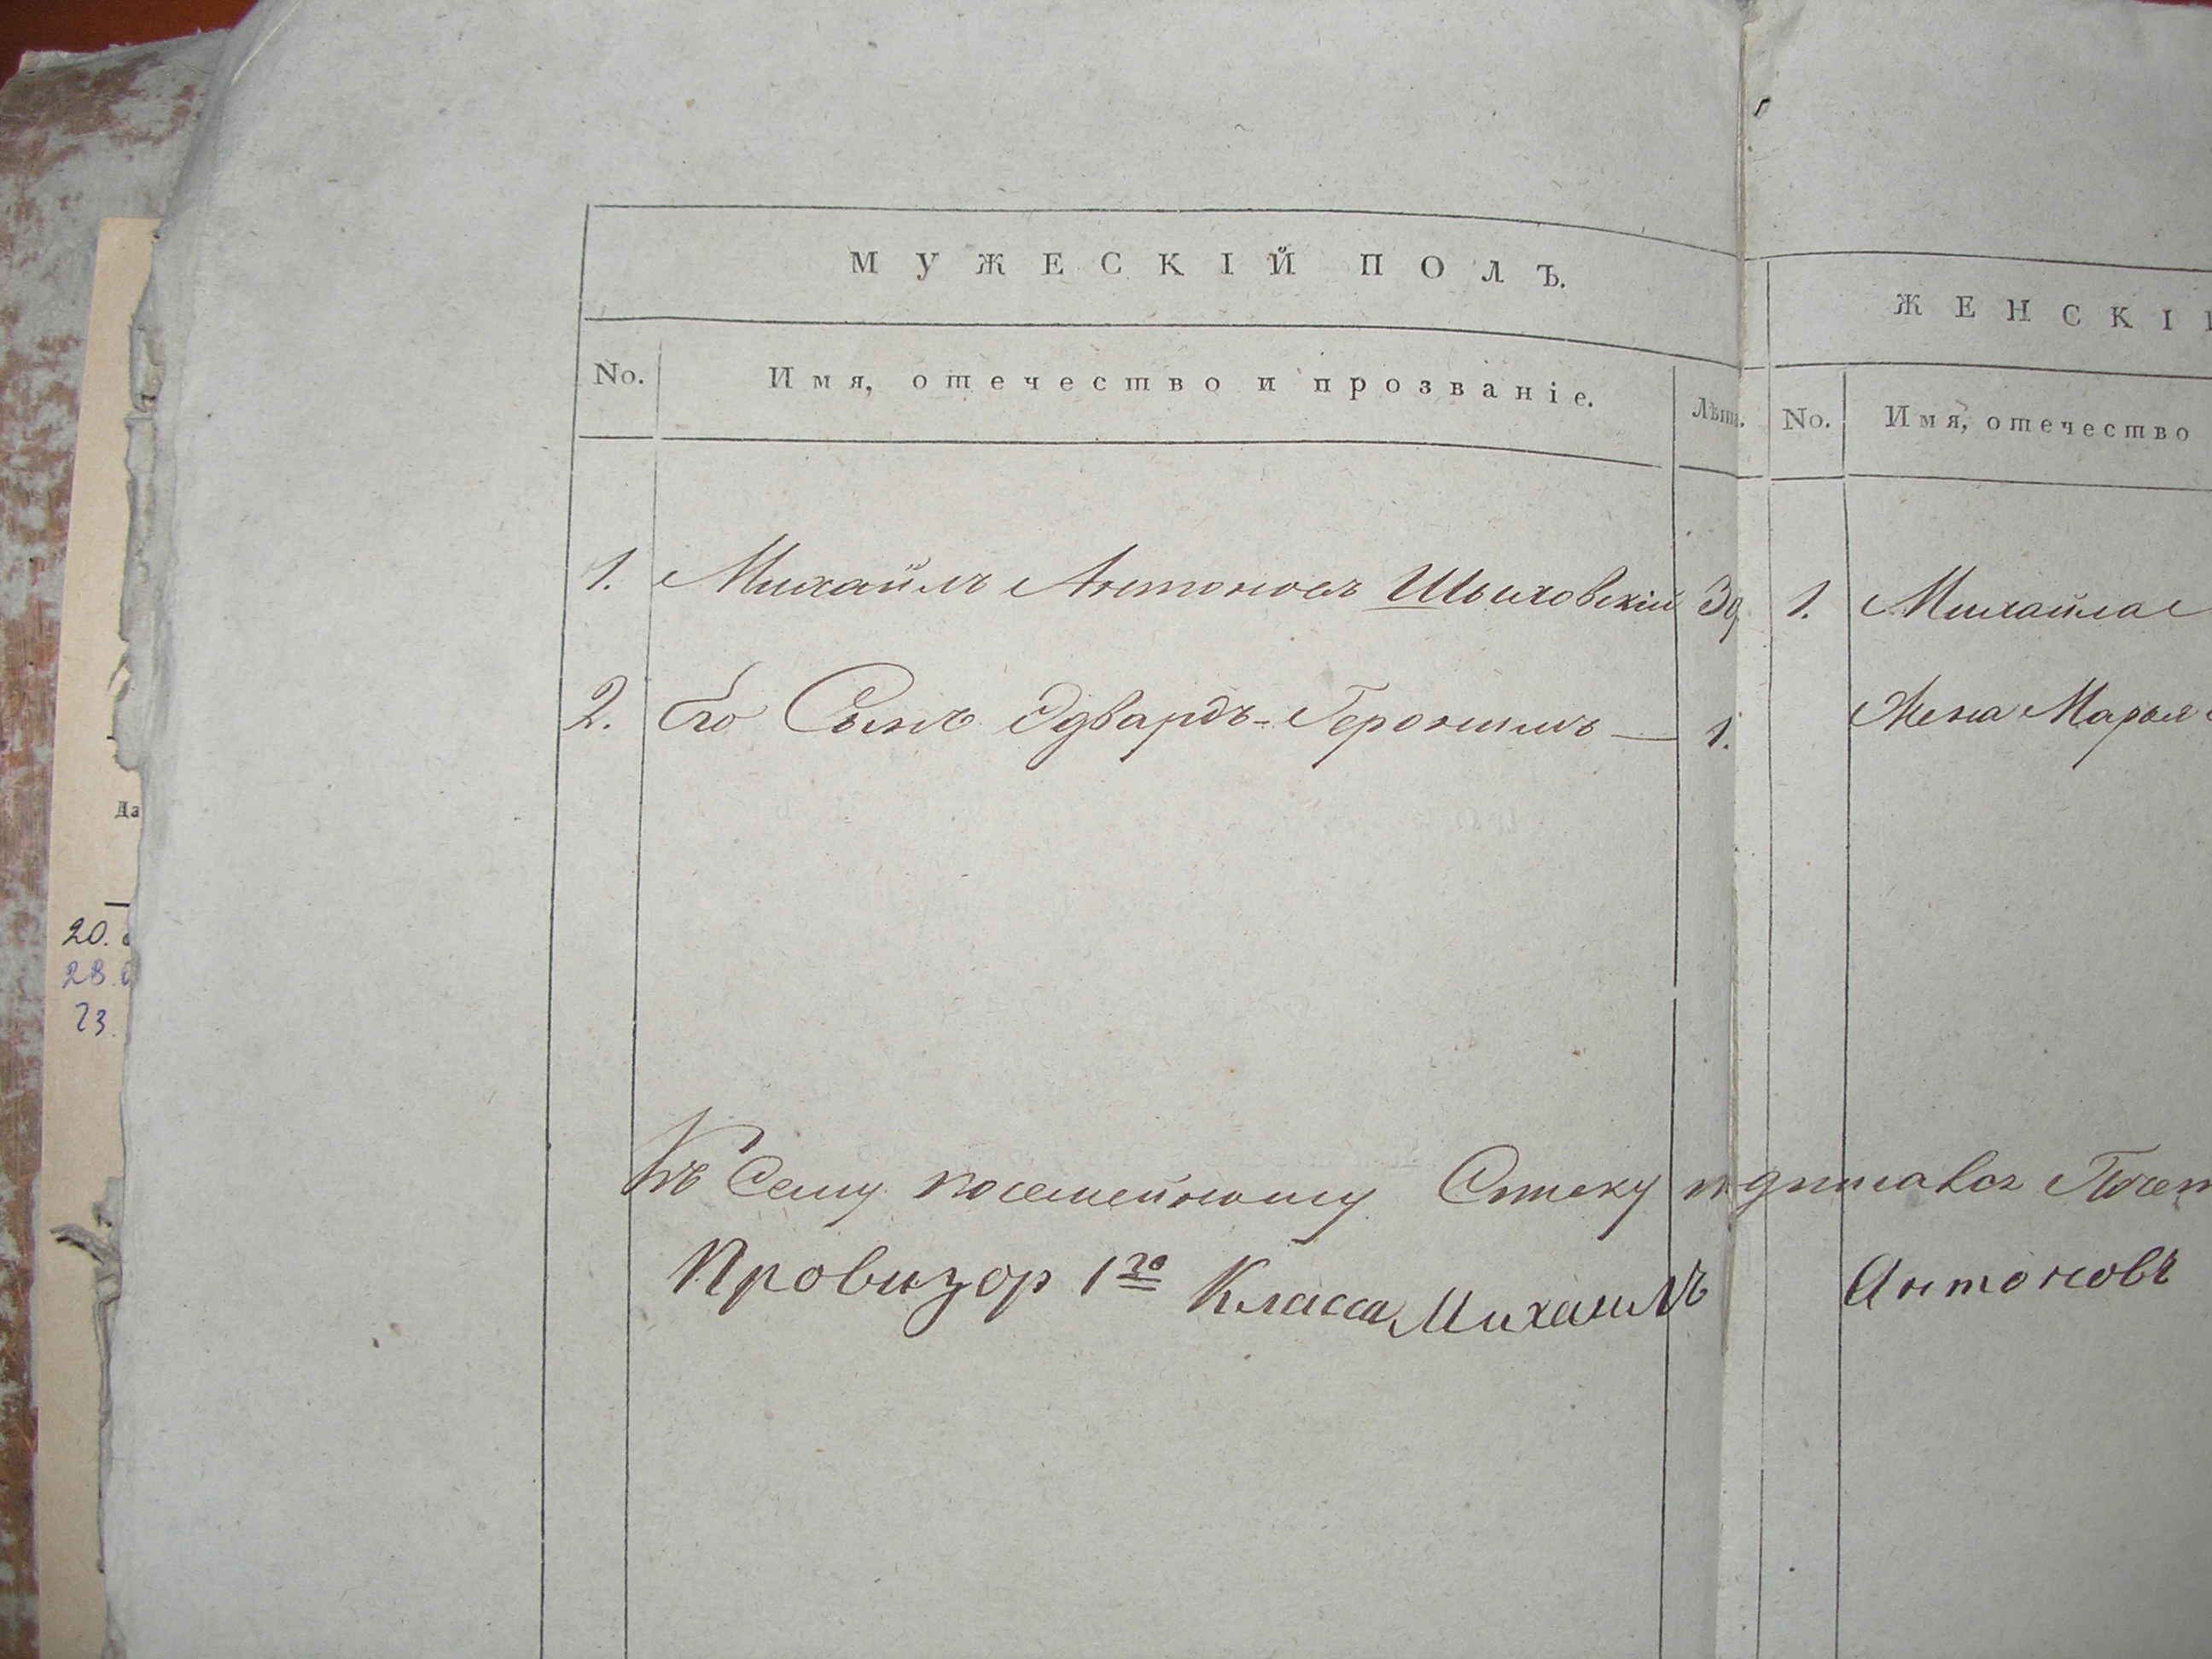 МУЖЕСКІЙ ПОЛЪ.
No. Имя, отечество и прозваніе. Лѣта.
1. Михайлъ Антоновъ Шыховскій 39
2. Его Сынъ Эдвардъ-Геронимъ — 1.
ЖЕНСКІ
No. Имя, отечество
1. Михайла
Жена Марья
Къ Сему посемейному Списку подписався
Провизор 1го Класса Михаилъ Антоновъ
Да
20.
28.
23.